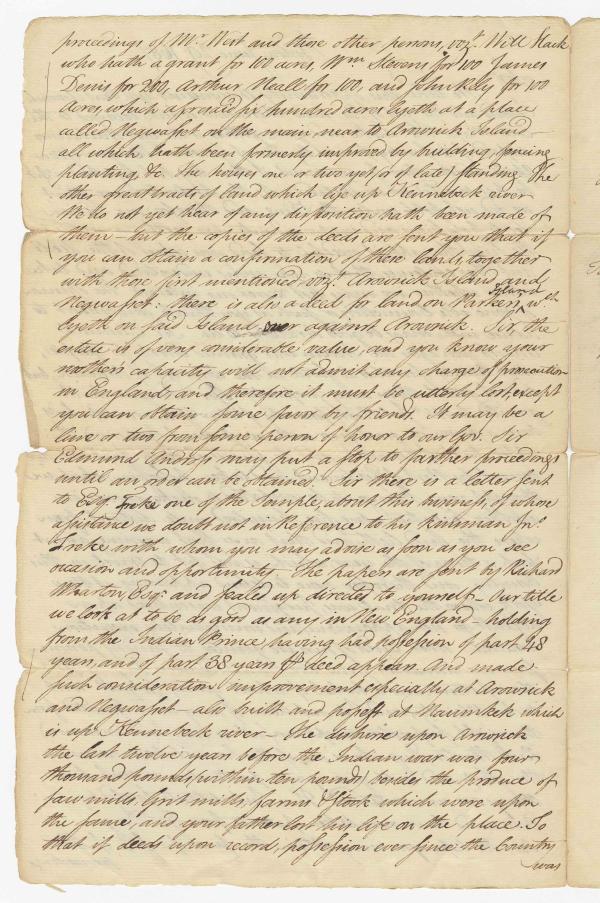 proceedings of Mr West and those other persons, vozt. Will Hack
who hath a grant for 100 acres, Wm Stevens for 100 James
Denis for 200, Arthur Neall for 100, and John Kely for 100
Acres, which aforesaid six hundred acres lyeth at a place
called Negwasset on the main near to Arowsick Island—
all which hath been formerly improved by building, fencing
planting &c. the houses one or two yet (or of late) standing The
other great tracts of land which lye up Kennebeck river
We do not yet hear of any disposition hath been made of
them—but the copies of the deeds are sent you that if
you can obtain a confirmation of these lands, together
with those first mentioned, vozt. Arowsick Island and
Negwasset: there is also a deed for land on Parkers Island ^ wch
lyeth on said Island over against Arowsick. Sir, the
estate is of very considerable value, and you know your
mother's capacity will not admit any charge of prosecution
in England, and therefore it must be utterly lost, except
you can obtain some favor by friends. It may be a
line or two from some person of honor to our Gov. Sir
Edmund Andross may put a stop to farther proceedings
until an order can be obtained. Sir there is a letter sent
to Esqr. Freke one of the Temple, about this business, of whose
assistance we doubt not in Reference to his kinsman Jno.
Freke with whom you may advise as soon as you see
occasion and opportunity—The papers are sent by Richard
Wharton, Esqr. and sealed up directed to yourself—Our title
we look at to be as good as any in New England—holding
from the Indian Prince, having had possession of part 48
years, and of part 38 years as deed appears. And made
such consideration improvement especially at Arowsick
and Negwasset—also built and possesst at Naumkek which
is up Kennebeck river—The disburse upon Arowsick
the last twelve years before the Indian war was four
thousand pounds (within ten pounds) besides the produce of
saw mills, Grit mills, farms & stock which were upon
the same, and your father lost his life on the place. So
that if deeds upon record, possession ever since the Country
was